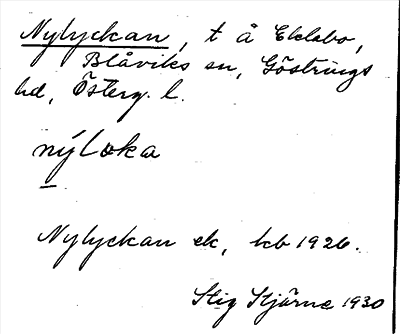 Nylyckan, t å Eklabo,
Blåviks sn, Göstrings
hd, Österg. l.
nýlωka
Nylyckan ek, kb 1926.
Stig Stjärne 1930